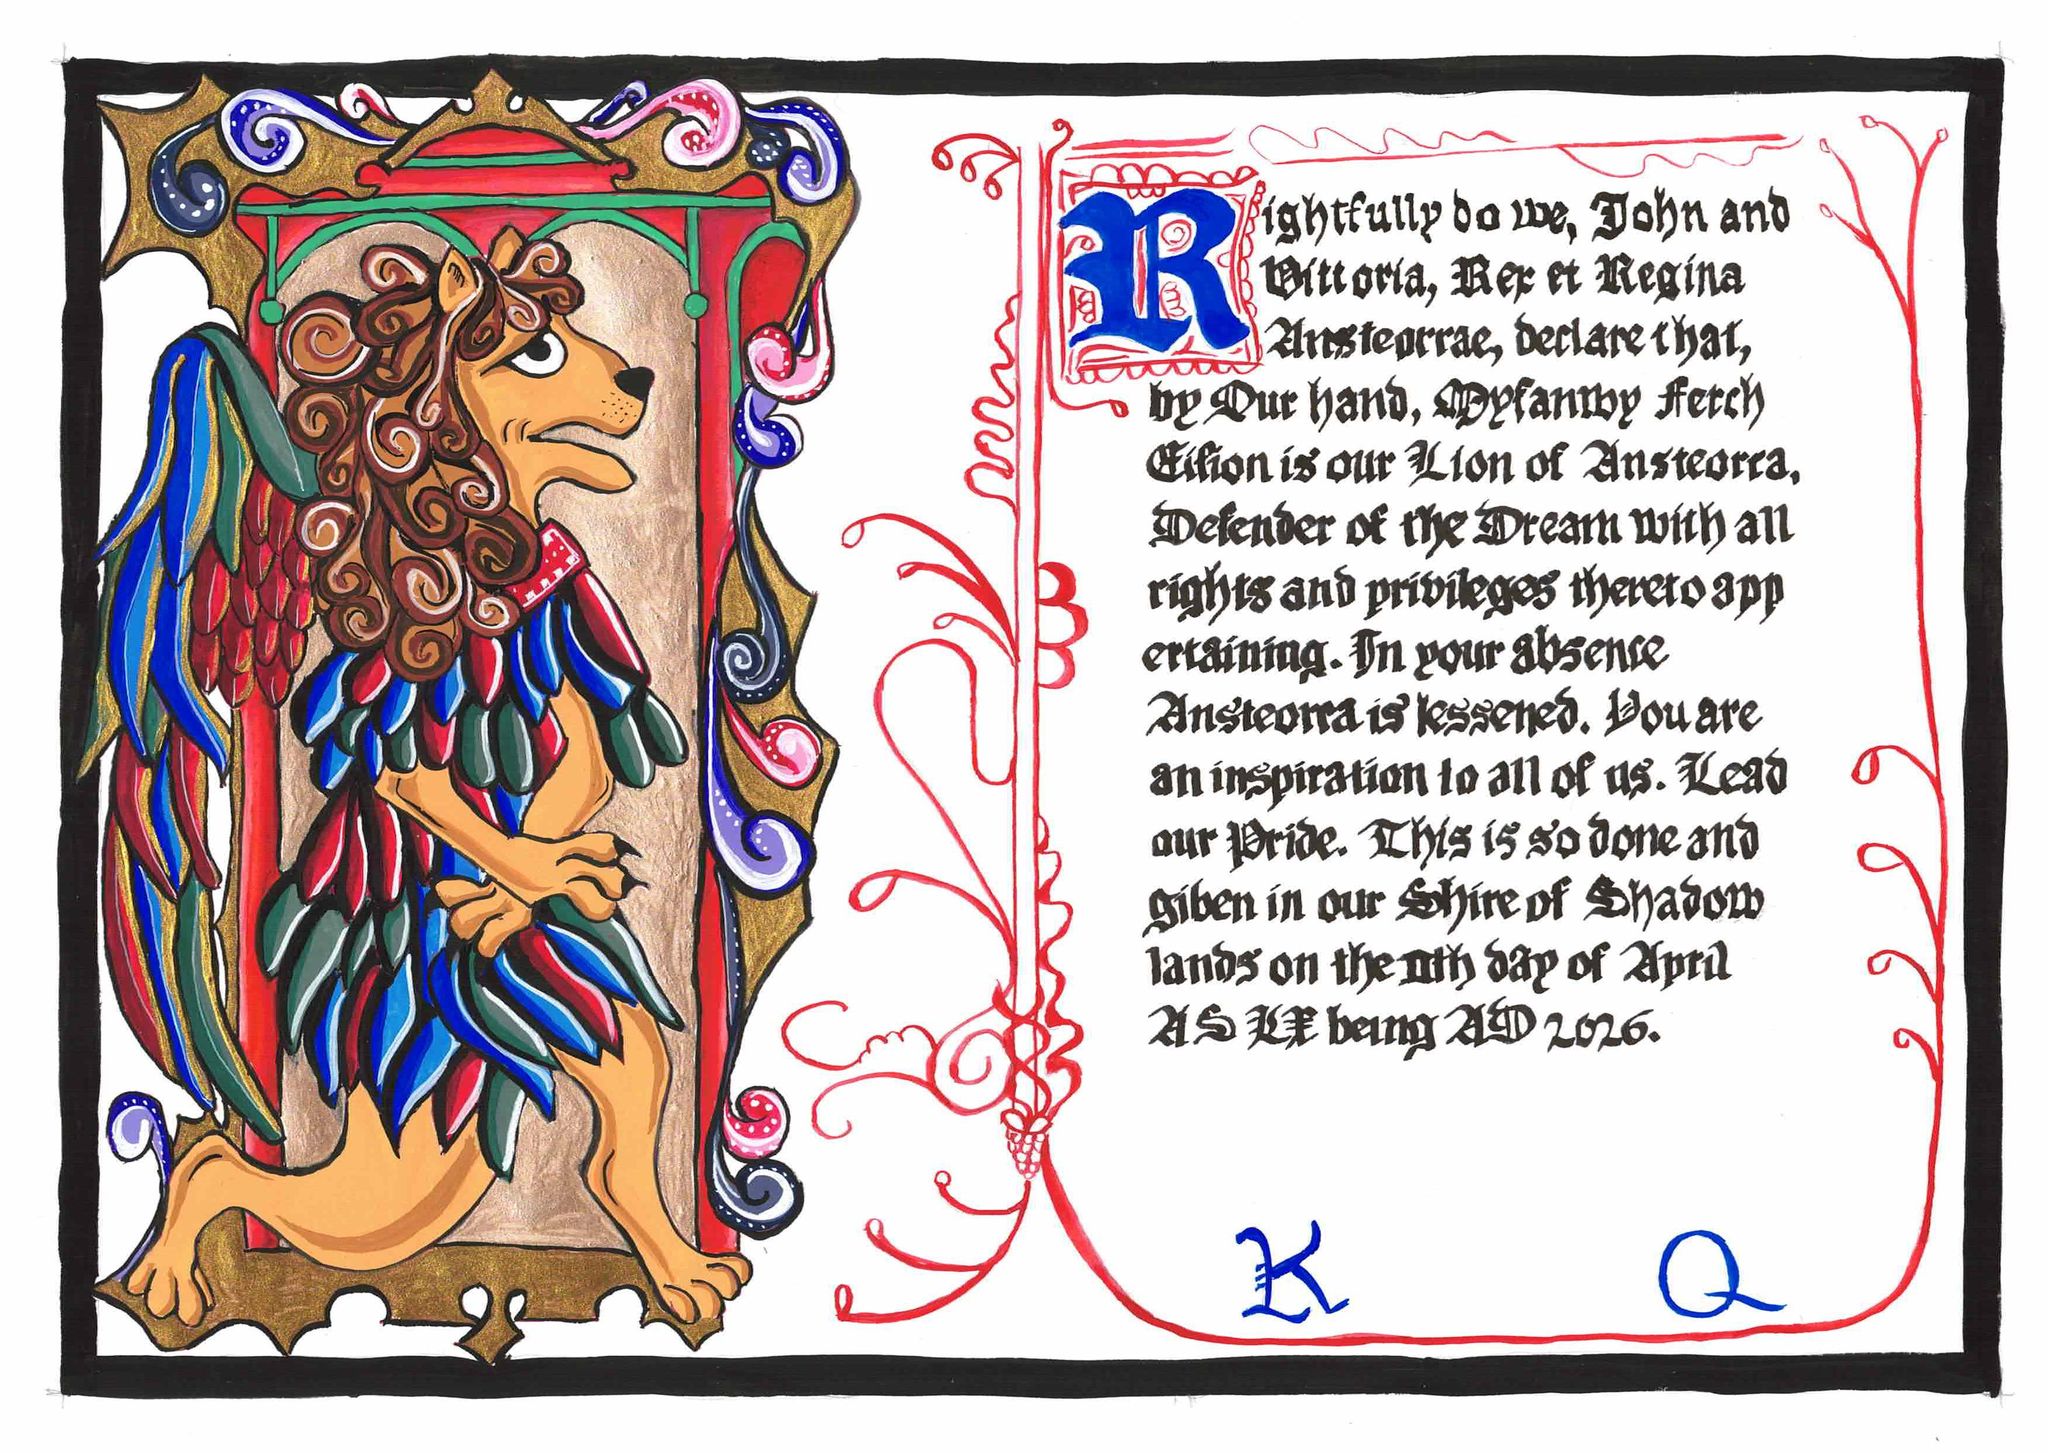 Rightfully do we, John and
Vittoria, Rex et Regina
Ansteorrae, declare that,
by Our hand, Myfanwy fferch
Eifion is our Lion of Ansteorra,
Defender of the Dream with all
rights and privileges thereto app
ertaining. In your absence
Ansteorra is lessened. You are
an inspiration to all of us. Lead
our Pride. This is so done and
given in our Shire of Shadow
lands on the 11th day of April
A S LX being AD 2026.
K Q